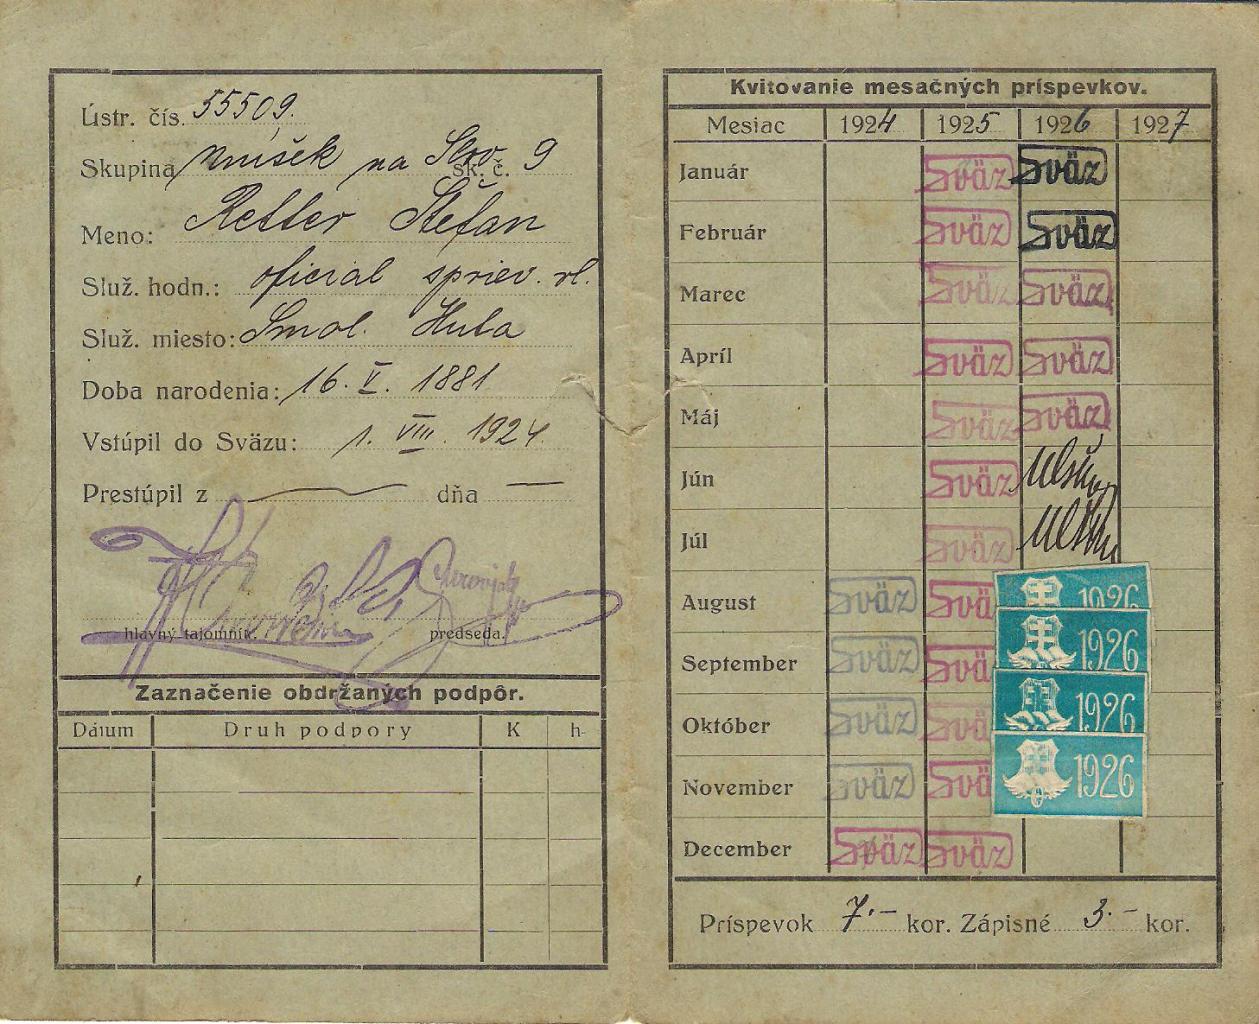 Ústr. čís. 55509.
Skupina na Slov. sk. č. 9
Meno: Retter Štefan
Služ. hodn.: oficial spriev. vl.
Služ. miesto: Smol. Huta
Doba narodenia: 16. V. 1881
Vstúpil do Sväzu: 1. VIII. 1924
Prestúpil z — dňa —
hlavný tajomník. predseda.
Zaznačenie obdržaných podpôr.
Dátum Druh podpory K h
Kvitovanie mesačných príspevkov.
Mesiac 1924 1925 1926 1927
Január Sväz Sväz
Február Sväz Sväz
Marec Sväz Sväz
Apríl Sväz Sväz
Máj Sväz Sväz
Jún Sväz
Júl Sväz
August Sväz Sväz 1926
September Sväz Sväz 1926
Október Sväz Sväz 1926
November Sväz Sväz 1926
December Sväz Sväz
Príspevok 7.- kor. Zápisné 3.- kor.